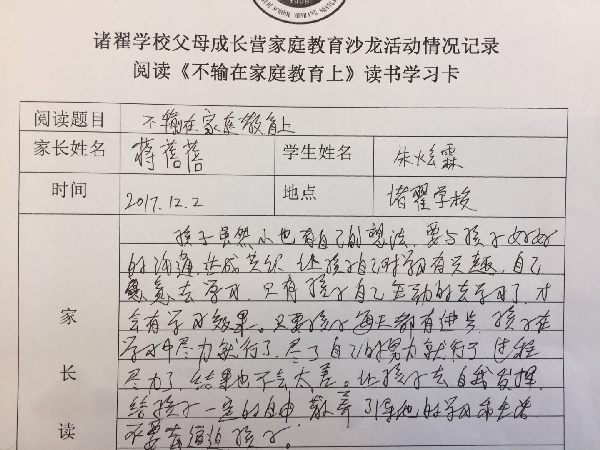 诸翟学校父母成长营家庭教育沙龙活动情况记录
阅读《不输在家庭教育上》读书学习卡
阅读题目 不输在家庭教育上
家长姓名 蒋蓓蓓 学生姓名 朱炫霖
时间 2017.12.2 地点 诸翟学校
孩子虽然小也有自己的想法,要与孩子好好
的沟通,达成共识,让孩子自己对学习有兴趣,自己
去学习,只有孩子自己主动的去学习了,才
会有学习效果。只要孩子每天都有进步,孩子在
学习中尽力就行了,尽了自己的努力就行了,过程
尽力了,结果也不会太差。让孩子去自我发挥,
给孩子一定的自由,引导他的学习
不要去逼迫孩子。
家
长
读